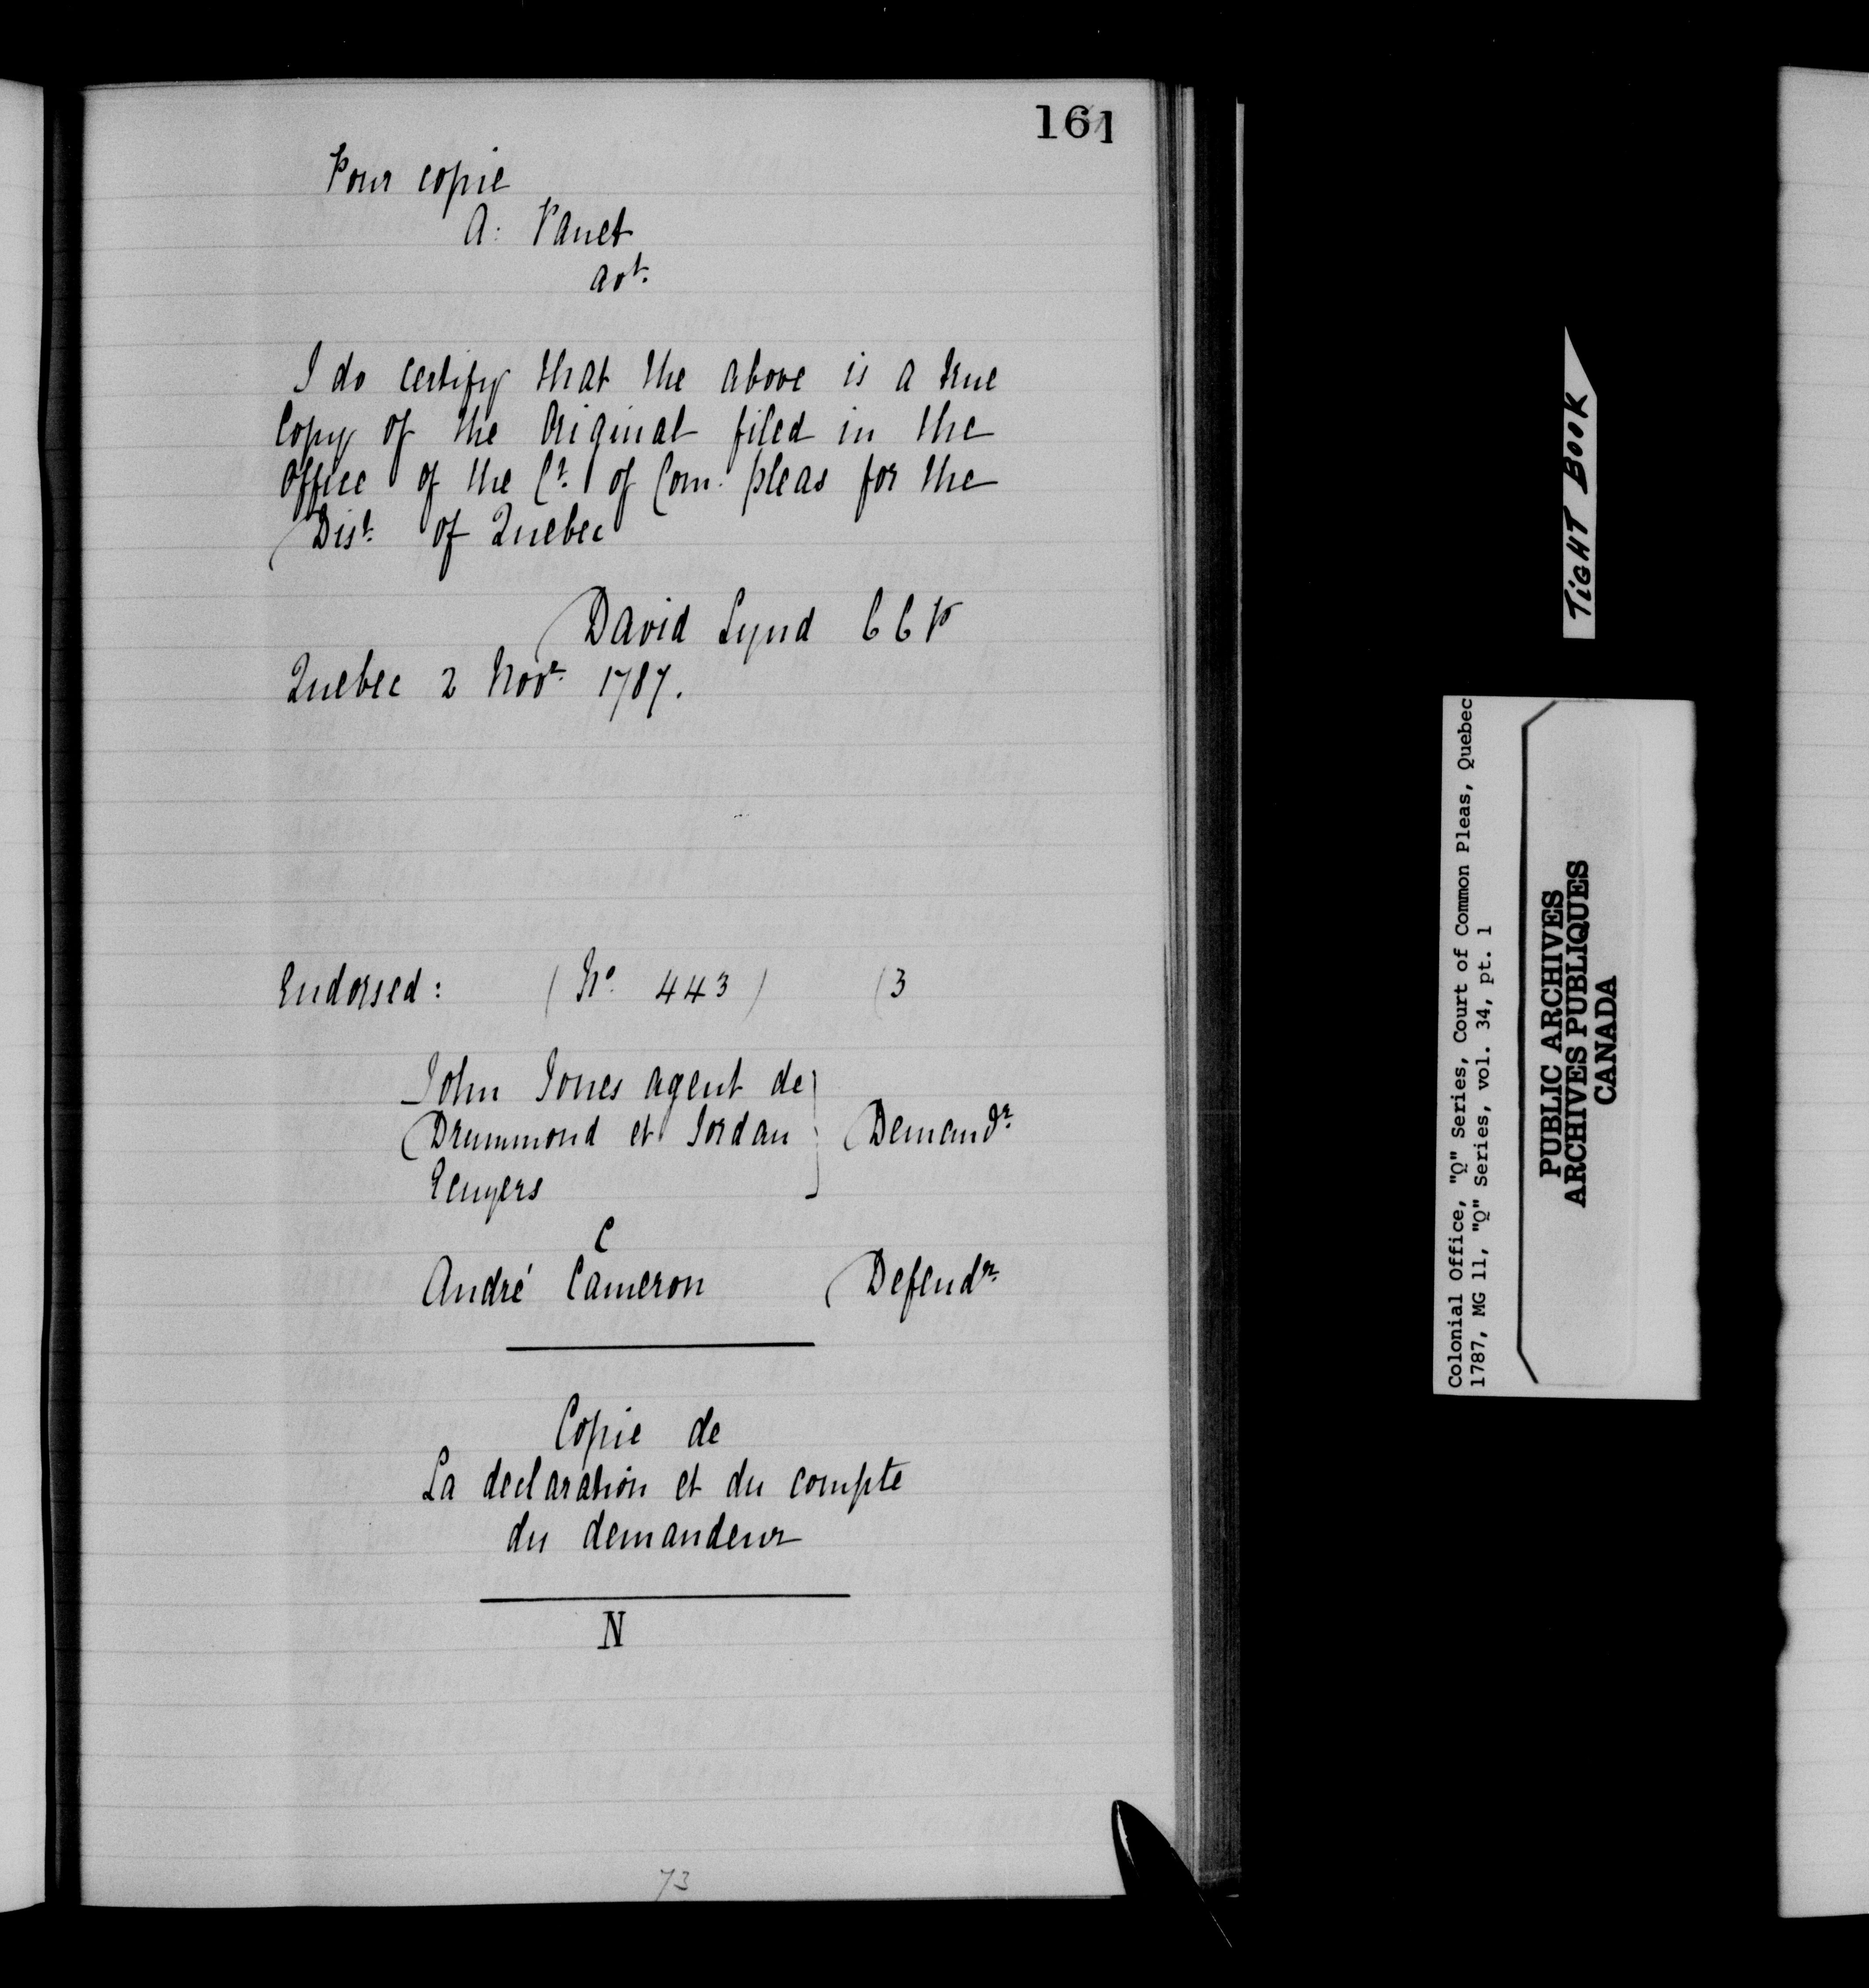 161
Pour copie
A: Panet
avt.
I do certify that the above is a true
Copy of the Original filed in the
Office of the Ct. of Com. pleas for the
Dist. of Quebec
David Lynd CCP
Quebec 2 Novr. 1787.
Endorsed: (No. 443) (3
John Jones agent de
Drummond et Jordan } Demandr.
Ecuyers
C
André Cameron Defendr.
Copie de
La declaration et du compte
du demandeur
N
73
TIGHT BOOK
Colonial Office, "Q" Series, Court of Common Pleas, Quebec
1787, MG 11, "Q" Series, vol. 34, pt. 1
PUBLIC ARCHIVES
ARCHIVES PUBLIQUES
CANADA